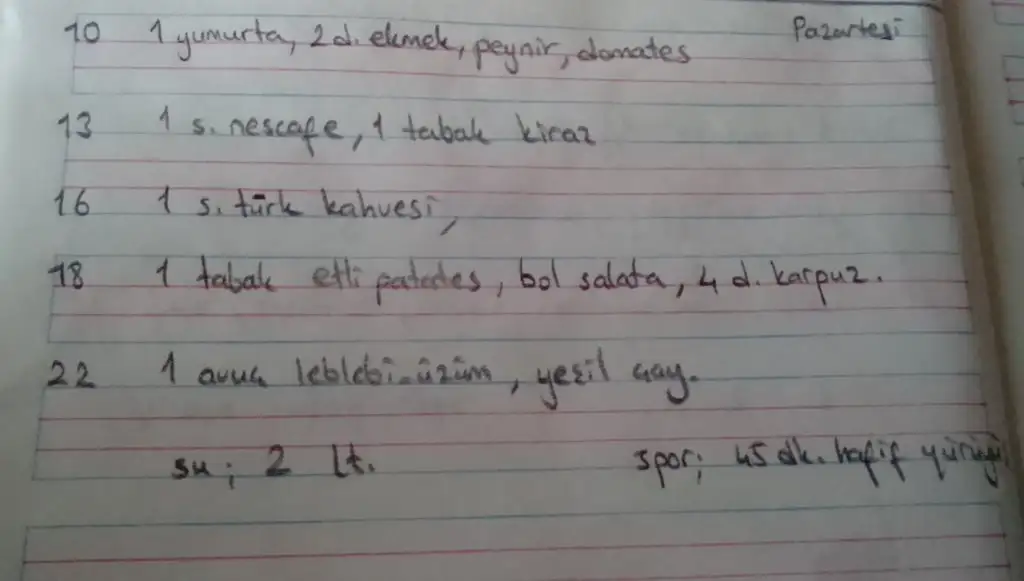 Pazartesi
10 1 yumurta, 2 d. ekmek, peynir, domates
13 1 s. nescafe, 1 tabak kiraz
16 1 s. türk kahvesi,
18 1 tabak etli patates, bol salata, 4 d. karpuz.
22 1 avuç leblebi-üzüm, yeşil çay.
su; 2 Lt. spor; 45 dk. hafif yürüyüş